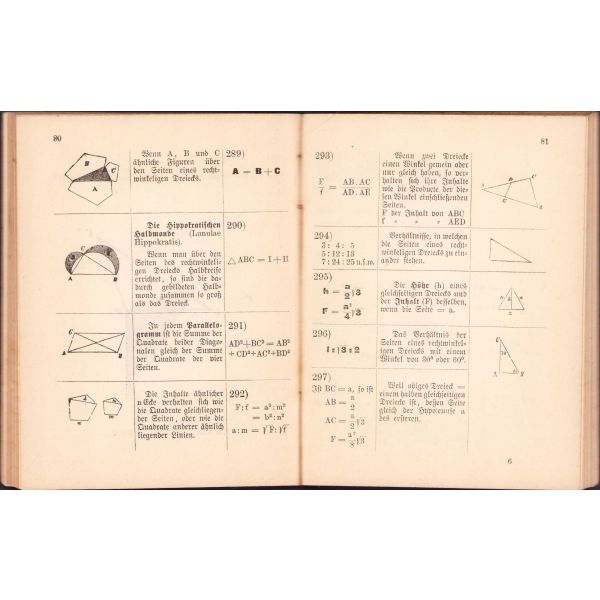 80
Wenn A, B und C
ähnliche Figuren über
den Seiten eines recht-
winkeligen Dreiecks.
289)
A = B + C
B
C
A
Die Hippokratischen
Halbmonde (Lunulae
Hippokratis).
Wenn man über den
Seiten des rechtwinkeli-
gen Dreiecks Halbkreise
errichtet, so sind die da-
durch gebildeten Halb-
monde zusammen so groß
als das Dreieck.
290)
△ ABC = I + II
C
A
B
In jedem Parallelo-
gramm ist die Summe der
Quadrate beider Diago-
nalen gleich der Summe
der Quadrate der vier
Seiten.
291)
AD²+BC² = AB²
+ CD²+AC²+BD²
C
A
B
Die Inhalte ähnlicher
nEcke verhalten sich wie
die Quadrate gleichliegen-
der Seiten, oder wie die
Quadrate anderer ähnlich
liegender Linien.
292)
F : f = a² : m²
= b² : n²
a : m = √F : √f
a
m
81
293)
F/f = AB . AC / AD . AE
Wenn zwei Dreiecke
einen Winkel gemein oder
nur gleich haben, so ver-
halten sich ihre Inhalte
wie die Producte der die-
sen Winkel einschließenden
Seiten.
F der Inhalt von ABC
f „ „ „ AED
294)
3 : 4 : 5
5 : 12 : 13
7 : 24 : 25 u.s.w.
Verhältnisse, in welchen
die Seiten eines recht-
winkeligen Dreiecks zu ein-
ander stehen.
295)
h = a/2 √3
F = a²/4 √3
Die Höhe (h) eines
gleichseitigen Dreiecks und
der Inhalt (F) desselben,
wenn die Seite = a.
h
296)
1 : √3 : 2
Das Verhältnis der
Seiten eines rechtwinkeli-
gen Dreiecks mit einem
Winkel von 30° oder 60°.
297)
Ist BC = a, so ist
AB = a/2
AC = a/2 √3
F = a²/8 √3
Weil obiges Dreieck =
einem halben gleichseitigen
Dreiecke ist, dessen Seite
gleich der Hypotenuse a
des ersteren.
6